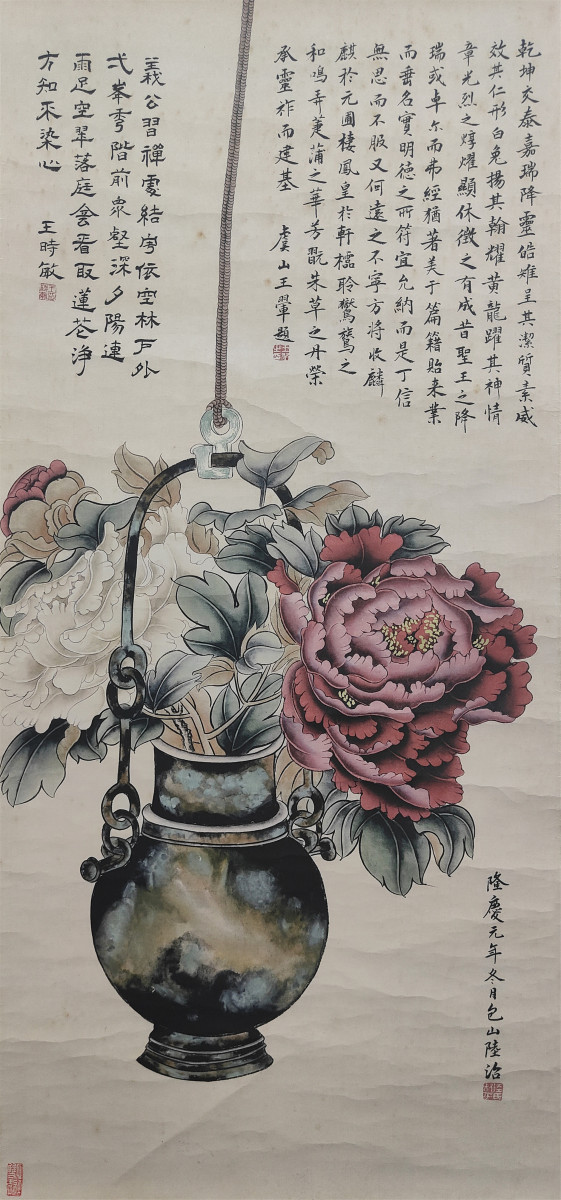 乾坤交泰嘉瑞降靈皓雉呈其潔質素威
效其仁形白兔揚其翰耀黃龍躍其神情
章光烈之焞燿顯休徵之有成昔聖王之降
瑞或卓尔而弗經猶著美于篇籍貽来業
而垂名實明德之所符宜允納而是丁信
無思而不服又何遠之不寧方将收麟
麒於元圃棲鳳皇於軒檽聆鸑鷟之
和鳴弄萐蒲之華芳翫朱草之丹榮
承靈祚而建基
虞山王翬題
義公習禪處結宇依空林戶外
弌峯秀階前衆壑深夕陽連
雨足空翠落庭侌看取蓮花淨
方知不染心
王時敏
隆慶元年冬月包山陸治